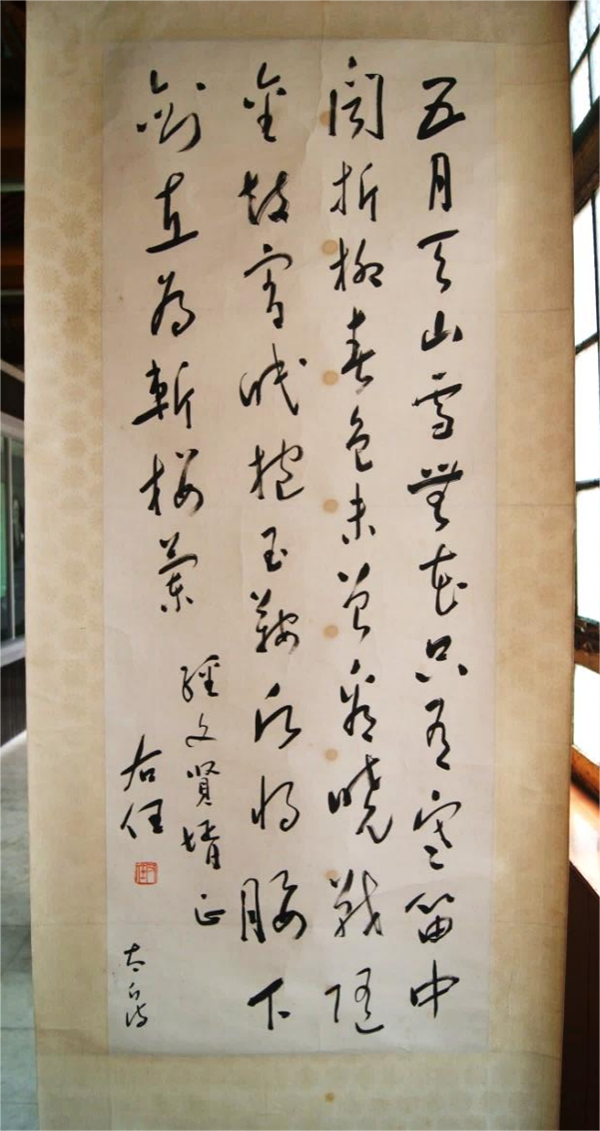 五月天山雪無花只有寒笛中
聞折柳春色未曾看曉戰隨
金鼓宵眠抱玉鞍願將腰下
劍直為斬樓蘭
經文賢壻正
右任
太白詩